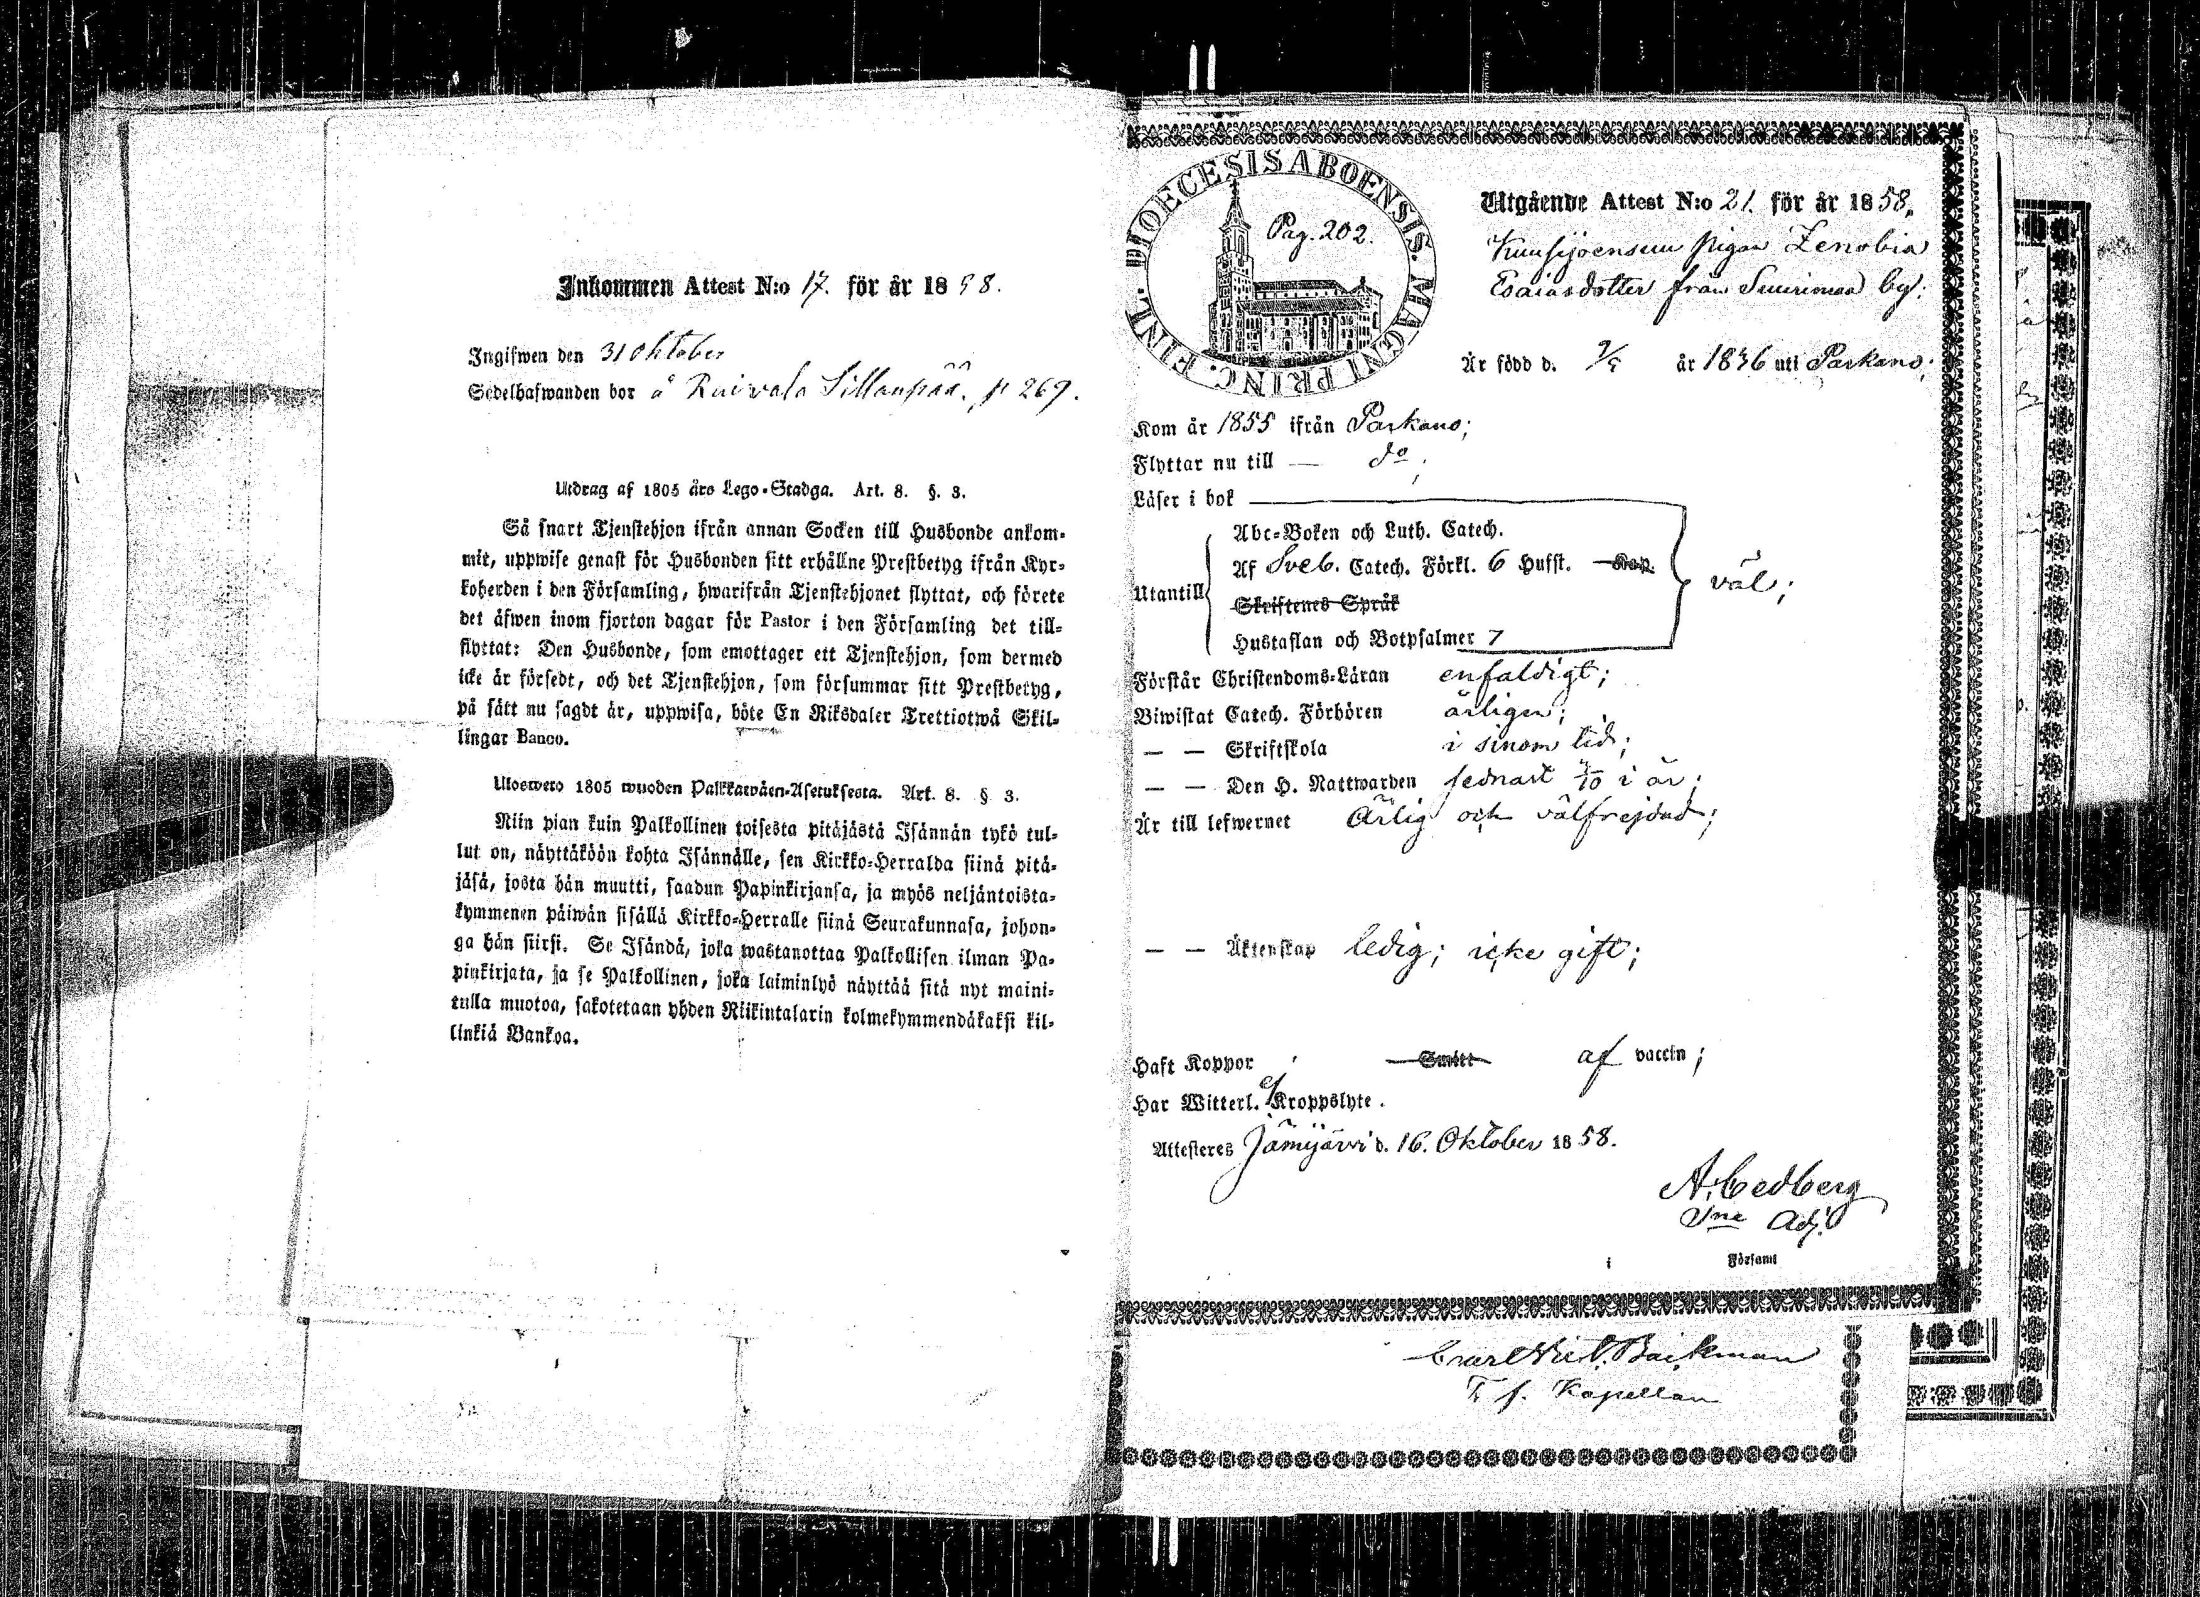 Inkommen Attest N:o 17. för år 1858.
Ingifwen den 31 Oktober
Sedelhafwanden bor å Ruivala Sillanpää. p 269.
Utdrag af 1805 års Lego-Stadga. Art. 8. §. 3.
Så snart Tjenstehjon ifrån annan Socken till Husbonde ankom-
mit, uppwise genast för Husbonden sitt erhållne Prestbetyg ifrån Kyr-
koherden i den Församling, hwarifrån Tjenstehjonet flyttat, och förete
det äfwen inom fjorton dagar för Pastor i den Församling det till-
flyttat: Den Husbonde, som emottager ett Tjenstehjon, som dermed
icke är försedt, och det Tjenstehjon, som försummar sitt Prestbetyg,
på sätt nu sagdt är, uppwisa, böte En Riksdaler Trettiotwå Skil-
lingar Banco.
Ulosweto 1805 wuoden Palkkawäen-Asetuksesta. Art. 8. § 3.
Niin pian kuin Palkollinen toisesta pitäjästä Isännän tykö tul-
lut on, näyttäköön kohta Isännälle, sen Kirkko-Herralda siinä pitä-
jäsä, josta hän muutti, saadun Papinkirjansa, ja myös neljäntoista-
kymmenen päiwän sisällä Kirkko-Herralle siinä Seurakunnasa, johon-
ga hän siirsi. Se Isändä, joka wastanottaa Palkollisen ilman Pa-
pinkirjata, ja se Palkollinen, joka laiminlyö näyttää sitä nyt maini-
tulla muotoa, sakotetaan yhden Riikintalarin kolmekymmendäkaksi kil-
linkiä Bankoa.
DIOECESIS ABOENSIS. MAGNI PRINC. FINL.
Pag. 202.
Utgående Attest N:o 21. för år 1858.
pigan Zenobia
Esaiasdotter från Suurimaa by;
Är född d. år 1836 uti Parkano;
Kom år 1855 ifrån Parkano;
Flyttar nu till — do;
Läser i bok
Utantill
Abc-Boken och Luth. Catech.
Af Sveb. Catech. Förkl. 6 Hufst. Kap.
Skriftenes Språk
Hustaflan och Botpsalmer 7
väl;
Förstår Christendoms-Läran enfaldigt;
Biwistat Catech. Förhören årligen;
— — Skriftskola i sinom tid;
— — Den H. Nattwarden sednast i år;
Är till lefwernet Ärlig och välfrejdad;
— — Äktenskap ledig; icke gift;
Haft Koppor Smitt af vaccin;
Har Witterl. ej Kroppslyte.
Attesteres Jämijärvi d. 16. Oktober 1858.
A. Cedberg
Adj.
i Församl
Backman
T. f. Kapellan